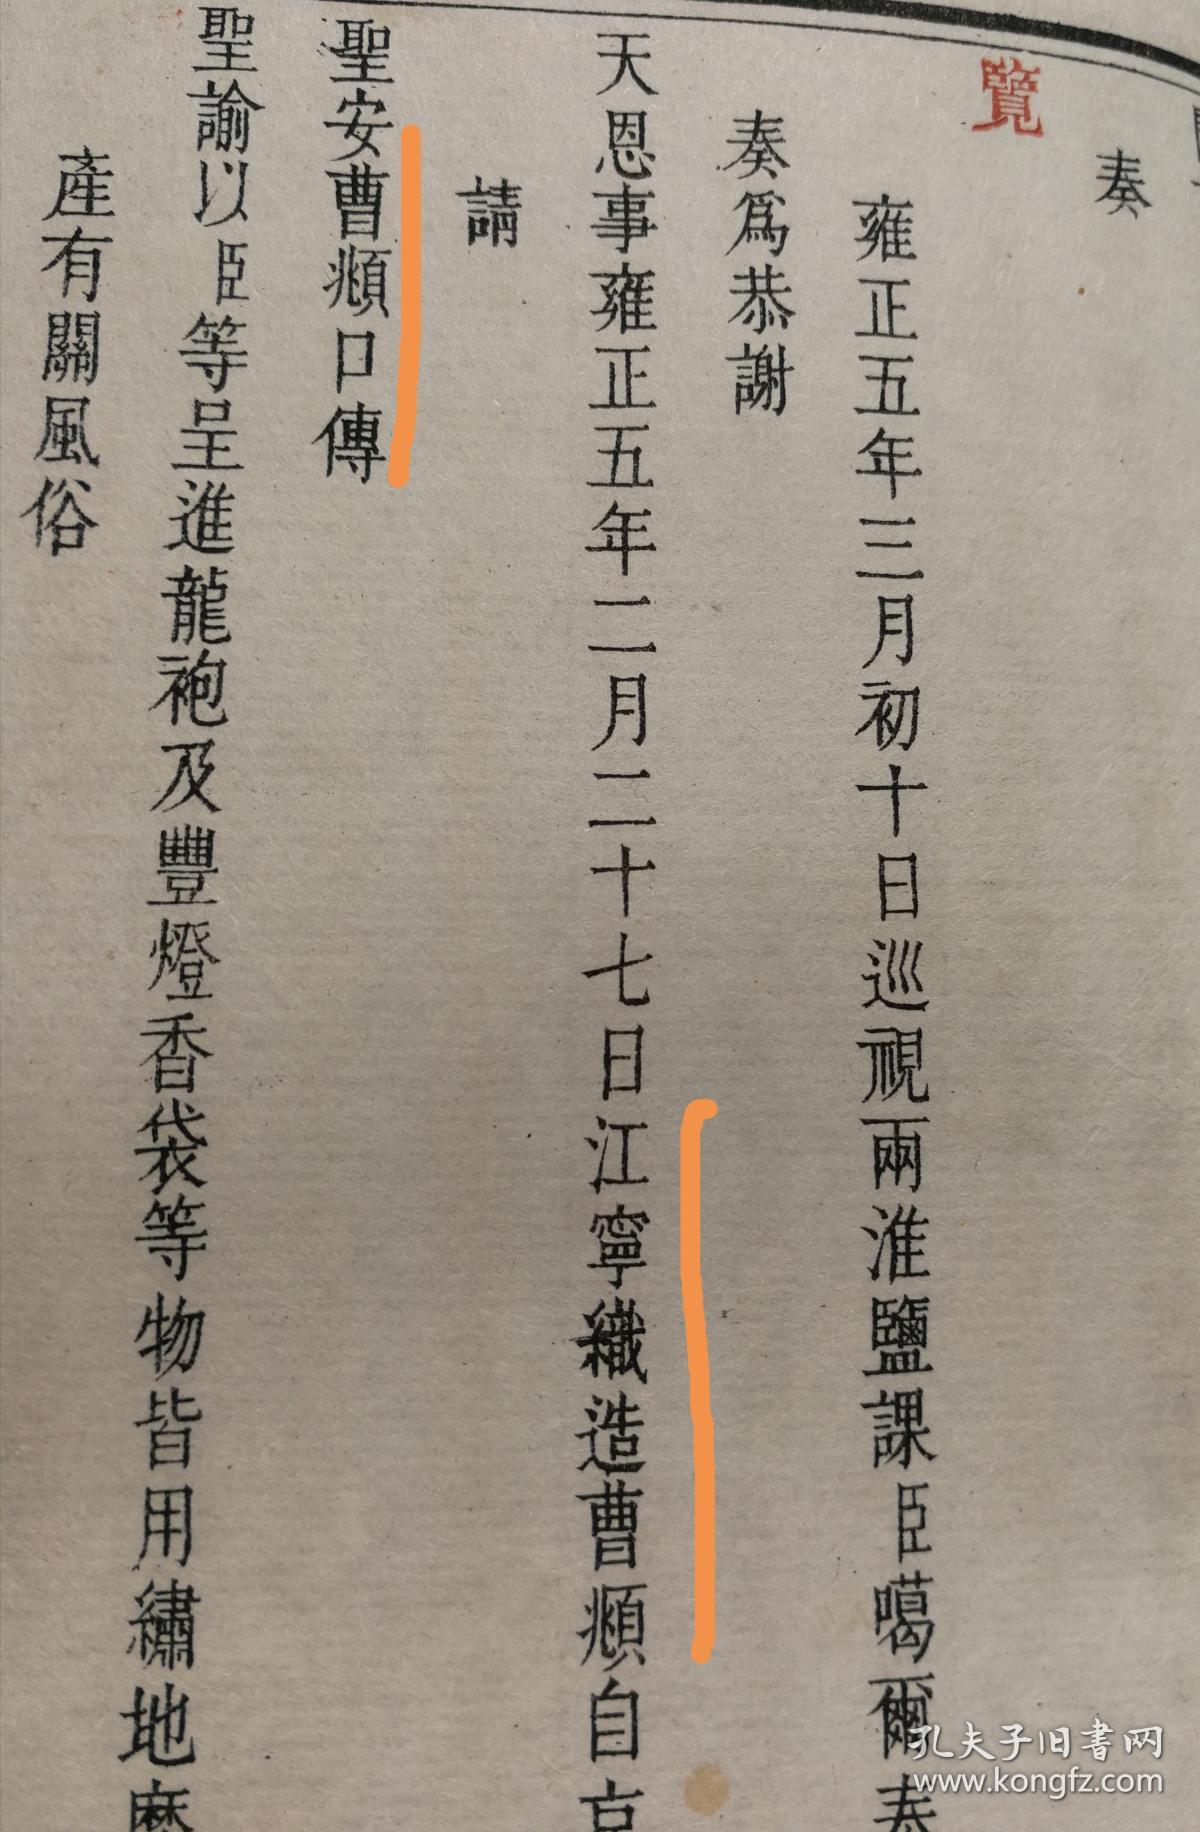 奏
覽
雍正五年三月初十日巡視兩淮鹽課臣噶爾泰
奏爲恭謝
天恩事雍正五年二月二十七日江寧織造曹頫自京
請
聖安曹頫口傳
聖諭以臣等呈進龍袍及豐燈香袋等物皆用繡地
產有關風俗
孔夫子旧书网
www.kongfz.com